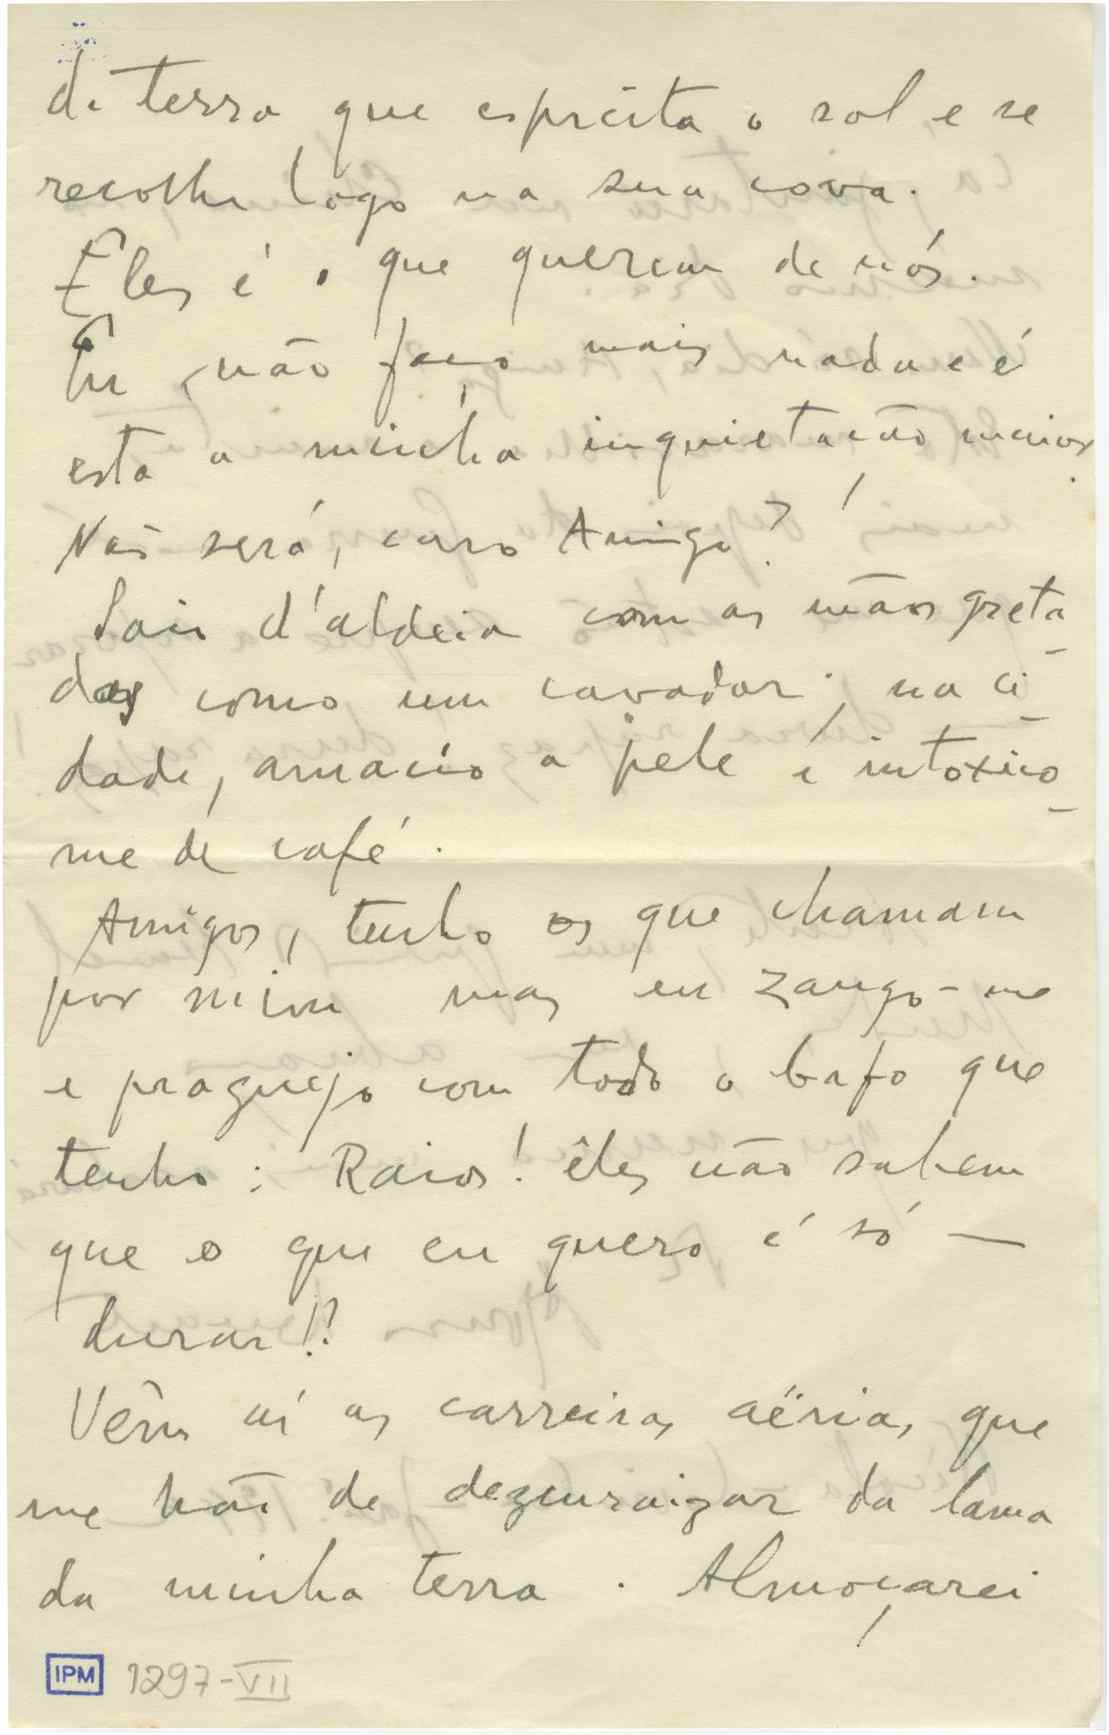 de terra que espreita o sol, e se
recolhe logo na sua cova.
Eles é o que querem de nós.
Eu não faço mais nada e é
esta a minha inquietação maior.
Não será, caro Amigo?
Saio d'aldeia com as mãos greta-
das como um cavador; na ci-
dade, amacío a pele e intoxico-
me de café.
Amigos, tenho os que chamam
por mim mas eu zango-me
e praguejo com todo o bafo que
tenho: Raios! êles não sabem
que o que eu quero é só —
durar!?
Vêm aí as carreiras aërias, que
me hão de dezenraizar da lama
da minha terra. Almoçarei
IPM 1297-VII